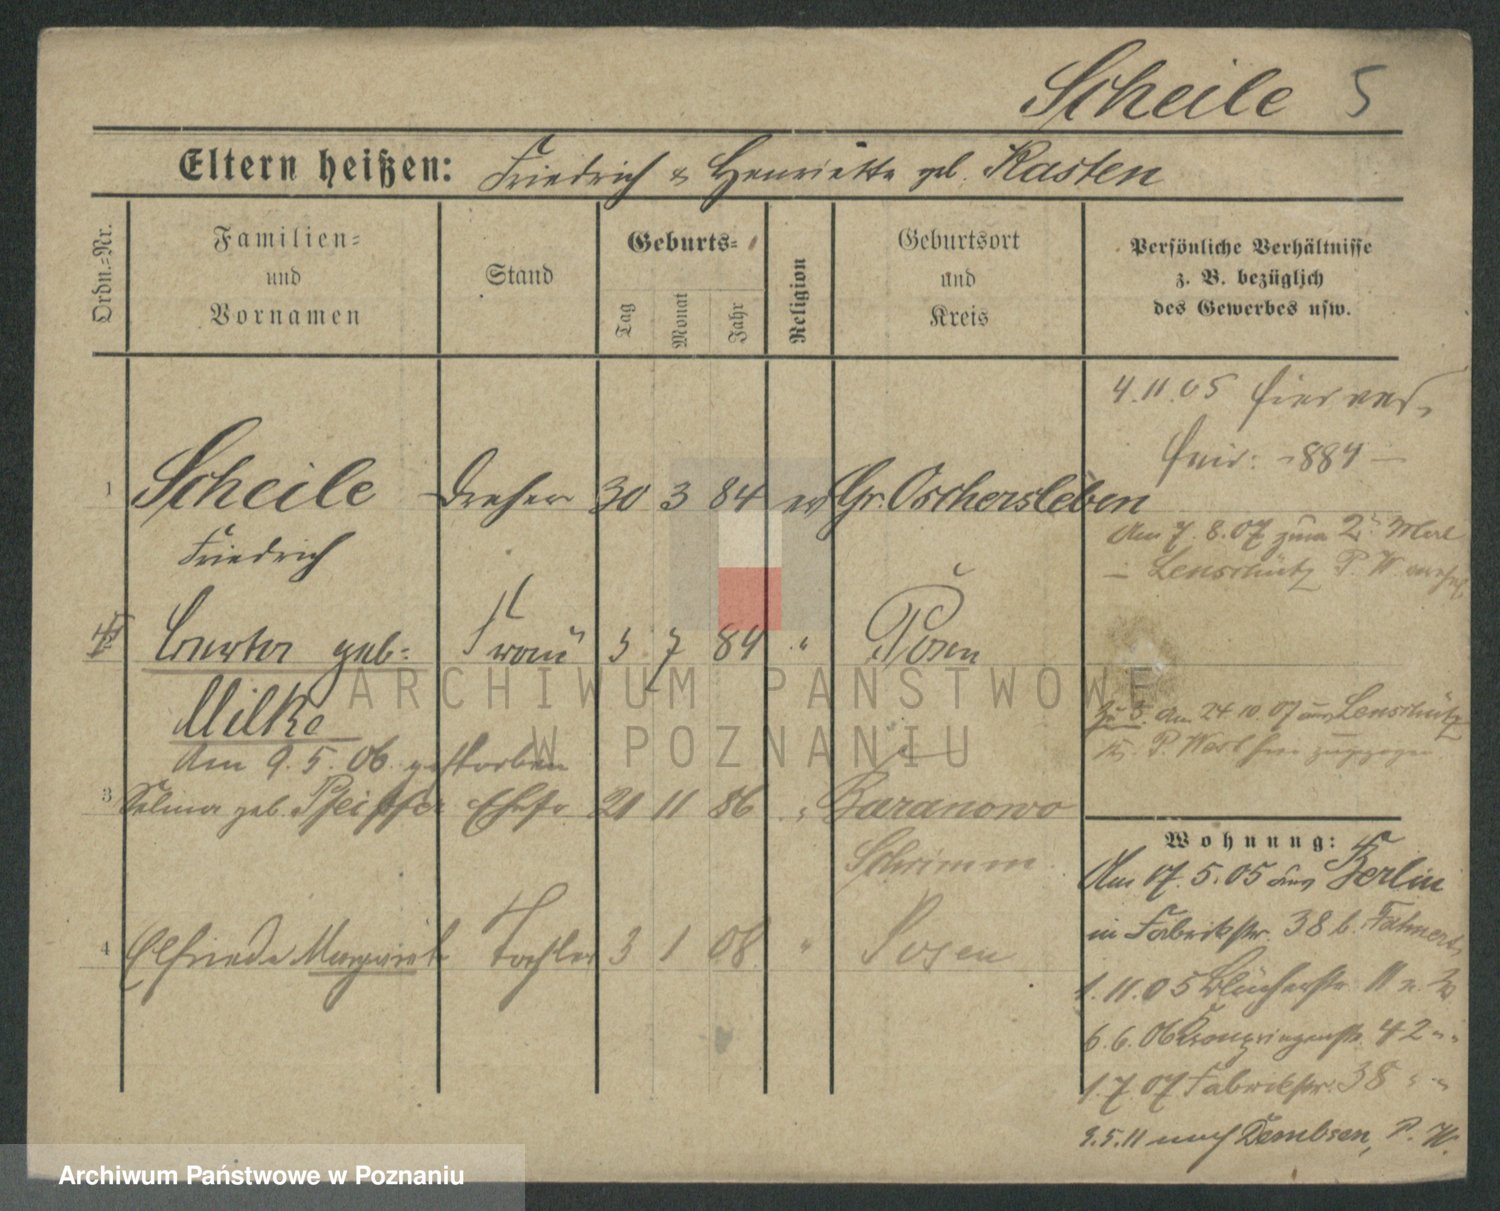 Scheile 5
Eltern heißen: Friedrich & Henriette geb. Kasten
Ordn.=Nr.
Familien=
und
Vornamen
Stand
Geburts=
Tag
Monat
Jahr
Religion
Geburtsort
und
Kreis
Persönliche Verhältnisse
z. B. bezüglich
des Gewerbes usw.
4.11.05
884
1 Scheile Dreher 30 3 84 ev Gr. Oschersleben
Friedrich
Am 7.8.07 zum 2.
Lenschütz P. W
geb. Frau 5 7 84 " Posen
Milke
Am 9.5.06 gestorben
Am 24.10.07 aus Lenschütz
P. West hier zugezogen
3 Selma geb. Pfeiffer Ehefr 21 11 86 " Baranowo
Schrimm
Wohnung:
Am 17.5.05 aus Berlin
in Fabrikstr. 38 b.
4 Elfriede Margarete Tochter 3 1 08 " Posen
1.11.05 Blücherstr. 11
6.6.06 Kronprinzenstr. 42 " "
1.7.07 Fabrikstr. 38 " "
3.5.11 nach Dembsen, P. W.
ARCHIWUM PAŃSTWOWE
W POZNANIU
Archiwum Państwowe w Poznaniu